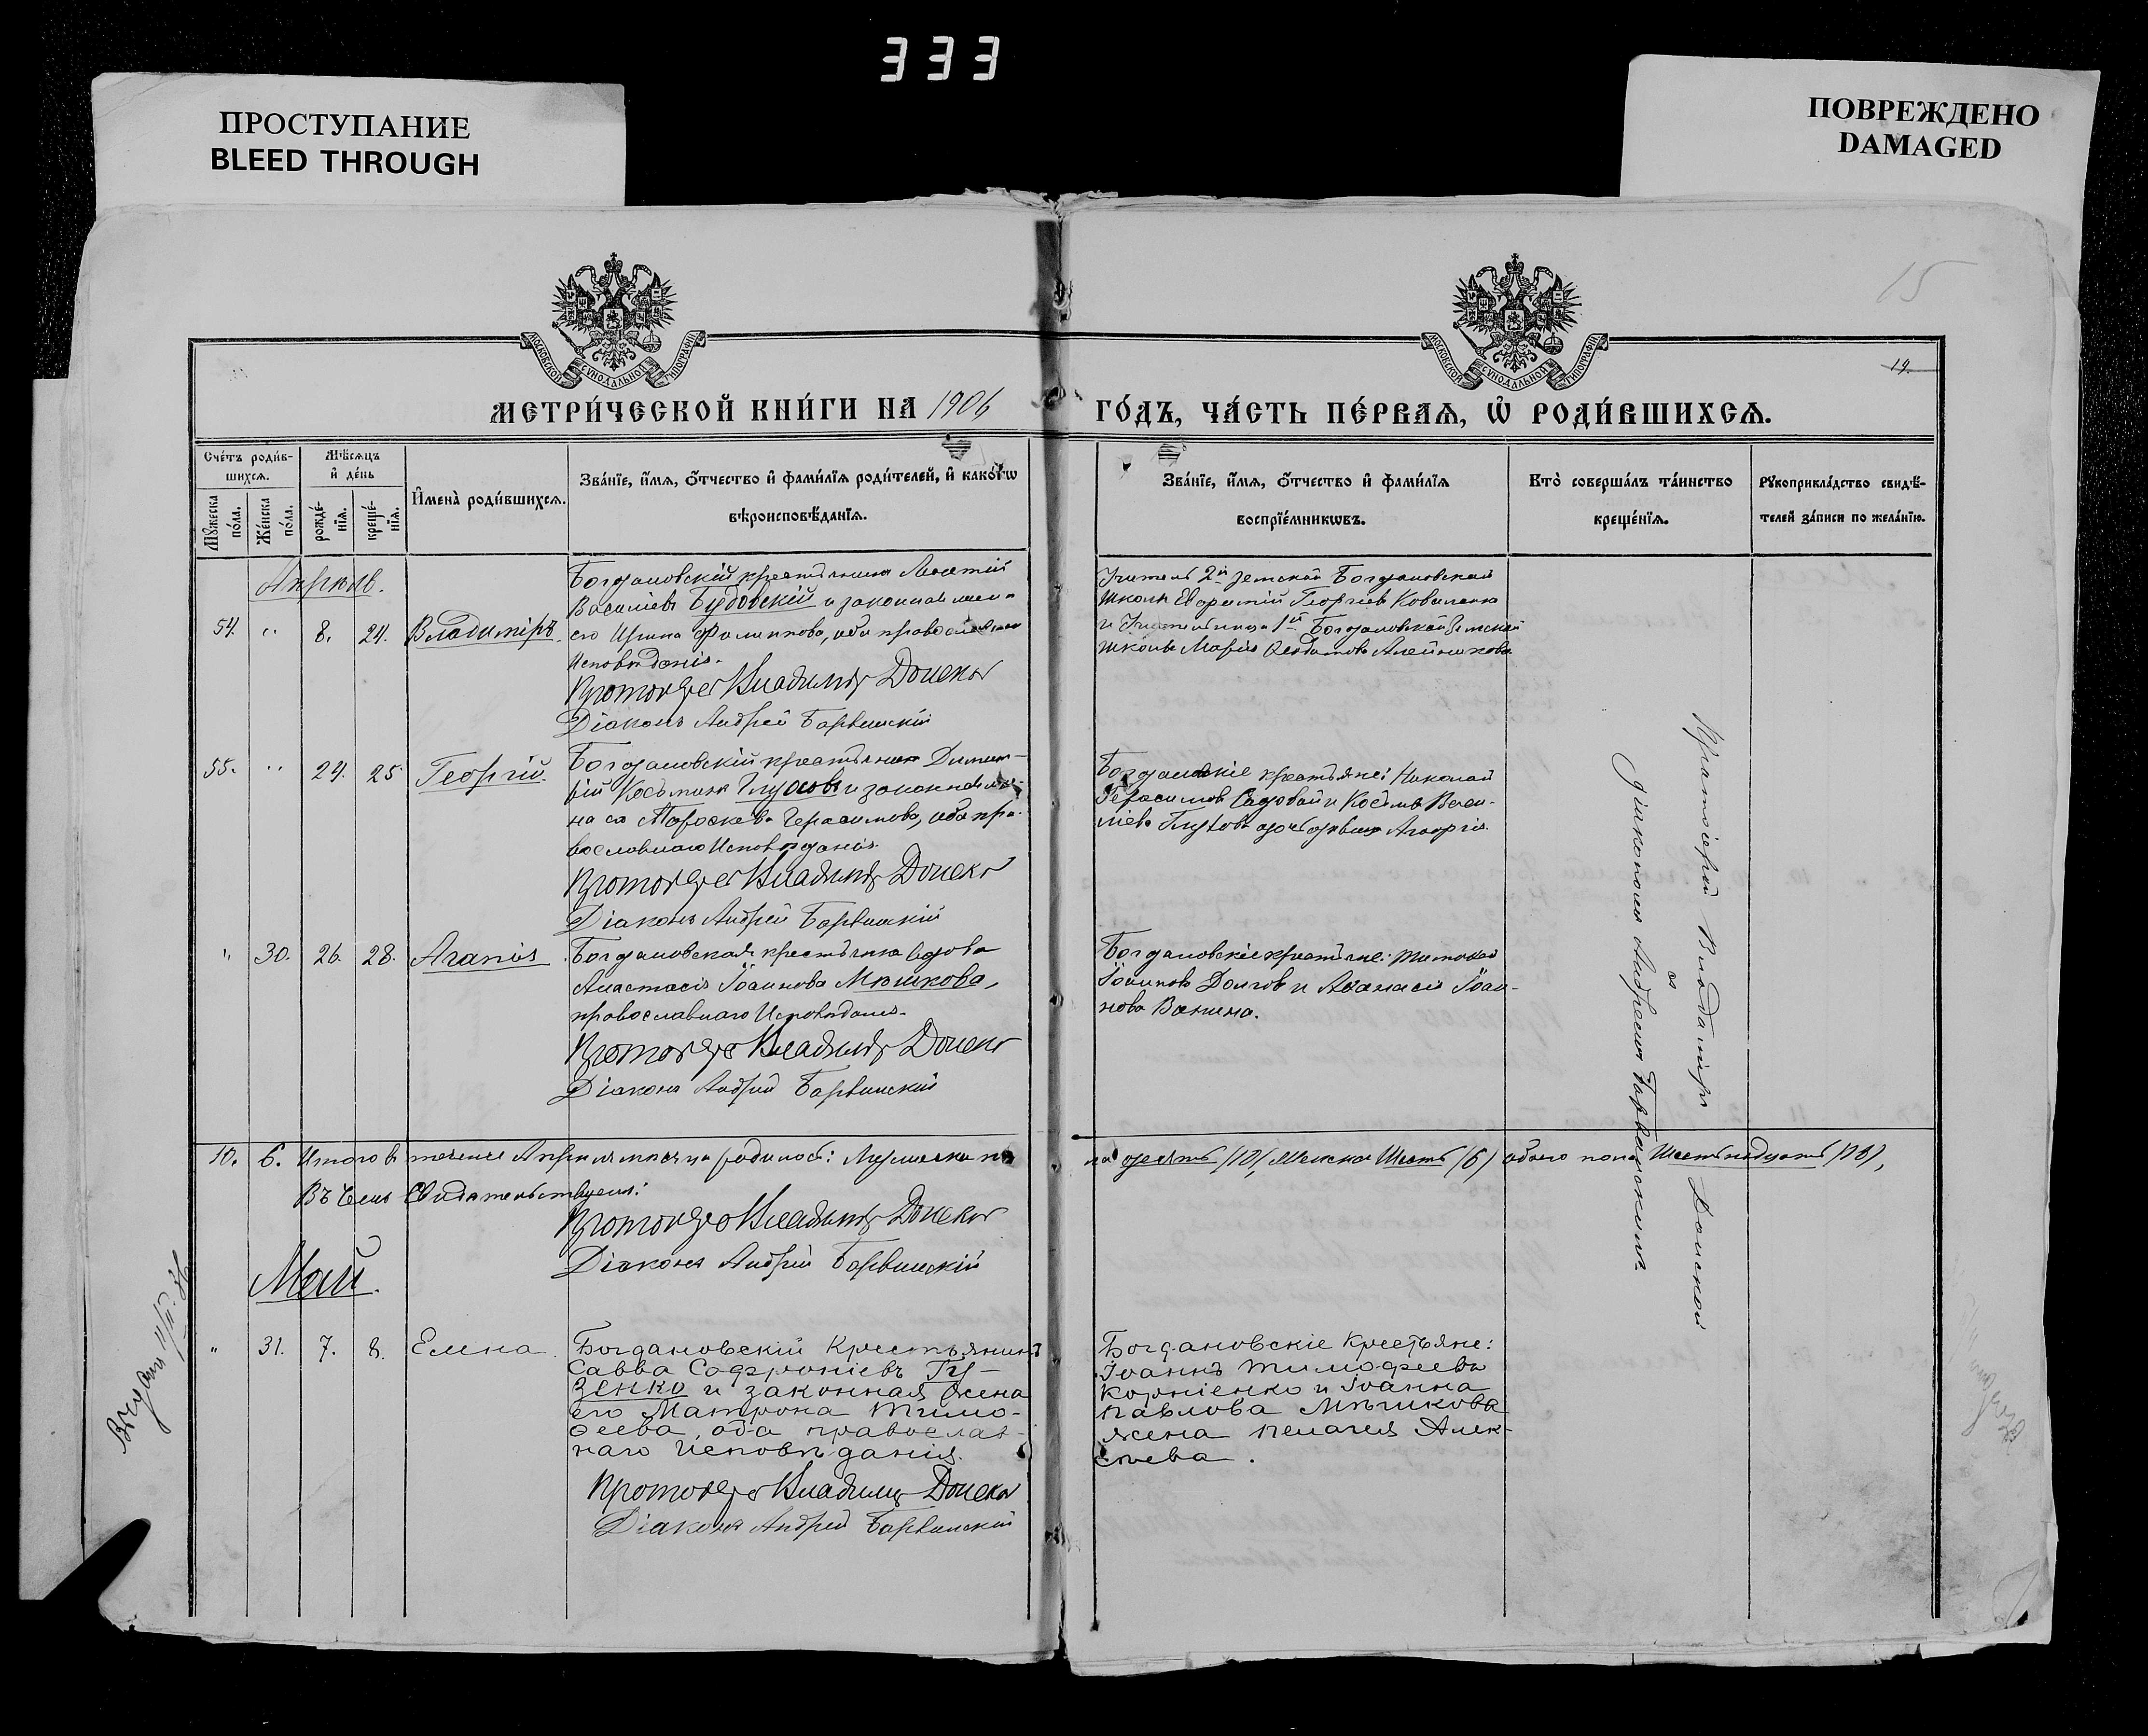 333
ПРОСТУПАНИЕ
BLEED THROUGH
ПОВРЕЖДЕНО
DAMAGED
15
19.
МОСКОВСКОЙ СѴНОДАЛЬНОЙ ТИПОГРАФІИ
МОСКОВСКОЙ СѴНОДАЛЬНОЙ ТИПОГРАФІИ
МЕТРИ́ЧЕСКОЙ КНИ́ГИ НА 1906
ГО́ДЪ, ЧА́СТЬ ПЕ́РВАѦ, Ѡ҆ РОДИ́ВШИХСѦ.
Сче́тъ роди́в-
шихсѧ.
Мꙋжеска по́ла.
Же́нска по́ла.
Мѣ́сѧцъ и҆ де́нь
рожде́-
нїѧ.
креще́-
нїѧ.
И҆мена̀ роди́вшихсѧ.
Зва́нїе, и҆́мѧ, ѻ҆́тчество и҆ фами́лїѧ роди́телей, и҆ како́гѡ
вѣроисповѣ́данїѧ.
Зва́нїе, и҆́мѧ, ѻ҆́тчество и҆ фами́лїѧ
воспрїе́мникѡвъ.
Кто̀ соверша́лъ та́инство
креще́нїѧ.
Рꙋкоприкла́дство свидѣ́-
телей за́писи по жела́нїю.
Апрѣль.
54. " 8. 24. Владиміръ.
Богдановскій крестьянинъ
Василіевъ Будовскій и законная жена
его Ирина Филиппова, оба православнаго
Исповѣданія.
Протоіерей Владиміръ Донской
Діаконъ Андрей Барвинскій
Учитель 2й земской Богдановской
школы Георгіевъ Коваленко
и Учительница 1й Богдановской Земской
школы Марія Алейникова
55. " 24. 25. Георгій.
Богдановскій крестьянинъ Димит-
рій Косьминъ Глуховъ и законная же-
на его Параскева Герасимова, оба пра-
вославнаго Исповѣданія.
Протоіерей Владиміръ Донской
Діаконъ Андрей Барвинскій
Богдановскіе крестьяне: Николай
Герасимовъ Садовой и Косьма Васи-
ліевъ Глуховъ
" 30. 26. 28. Агапія
Богдановская крестьянка вдова
Анастасія Іоаннова Мѣшкова,
православнаго Исповѣданія.
Протоіерей Владиміръ Донской
Діаконъ Андрей Барвинскій
Богдановскіе крестьяне: Тимофей
Іоанновъ Долговъ и Аѳанасія Іоан-
нова Ванина.
Протоіерей Владиміръ Донской
съ
діакономъ Андреемъ Барвинскимъ.
10. 6. Итого въ теченіе Апрѣля мѣсяца родилось: Мужеска по-
ла десять (10), Женска Шесть (6) обоего пола Шестьнадцать (16),
Въ чемъ Свидѣтельствуемъ:
Протоіерей Владиміръ Донской
Діаконъ Андрей Барвинскій
Май.
" 31. 7. 8. Елена
Богдановскій Крестьянинъ
Савва Софроніевъ Гу-
зенко и законная жена
его Матрона Тимо-
ѳеева, оба православ-
наго Исповѣданія.
Протоіерей Владиміръ Донской
Діаконъ Андрей Барвинскій
Богдановскіе Крестьяне:
Іоаннъ Тимофеевъ
Корніенко и Іоанна
Павлова Мѣшкова
жена Пелагея Алек-
сѣева.